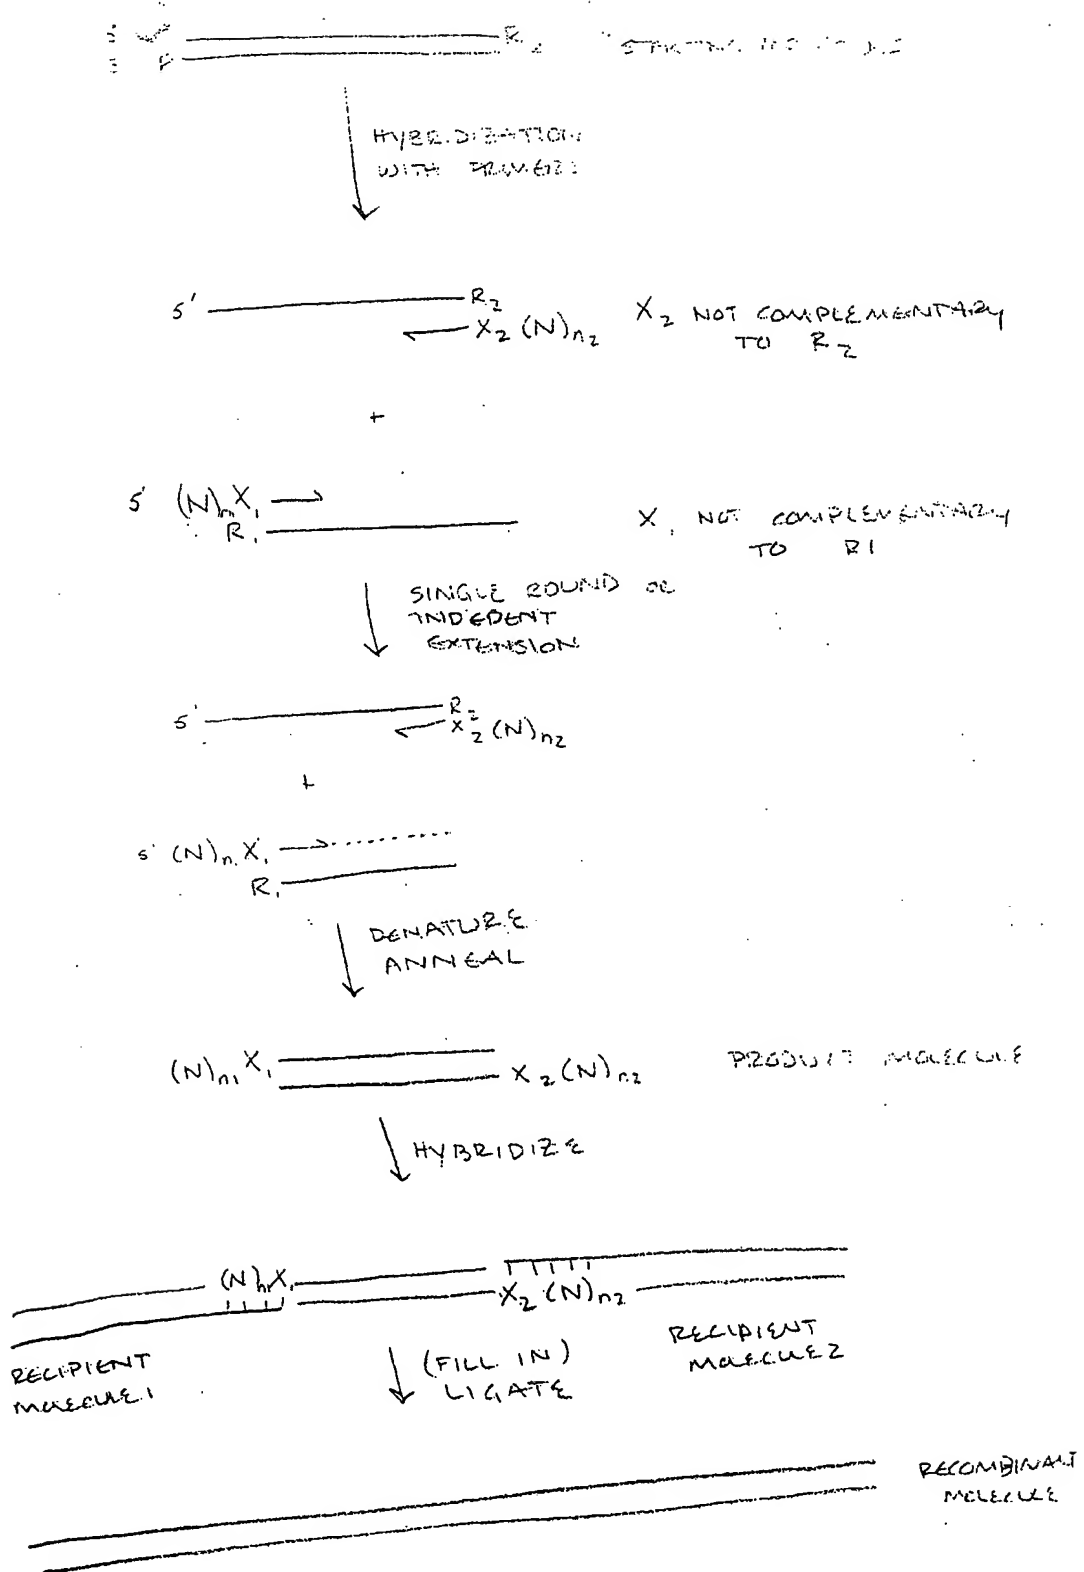 5'
R2
3
HYBRIDIZATION
WITH
5' R2
X2 (N)n2
X2 NOT COMPLEMENTARY
TO R2
+
5' (N)n X1
R1
X1 NOT COMPLEMENTARY
TO R1
SINGLE ROUND OR
INDEDENT
EXTENSION
5' R2
X2 (N)n2
+
5' (N)n1 X1
R1
DENATURE
ANNEAL
(N)n1 X1
X2 (N)n2
PRODUCT MOLECULE
HYBRIDIZE
(N)n X1
X2 (N)n2
RECIPIENT
MOLECULE 1
RECIPIENT
MOLECULE 2
(FILL IN)
LIGATE
RECOMBINANT
MOLECULE